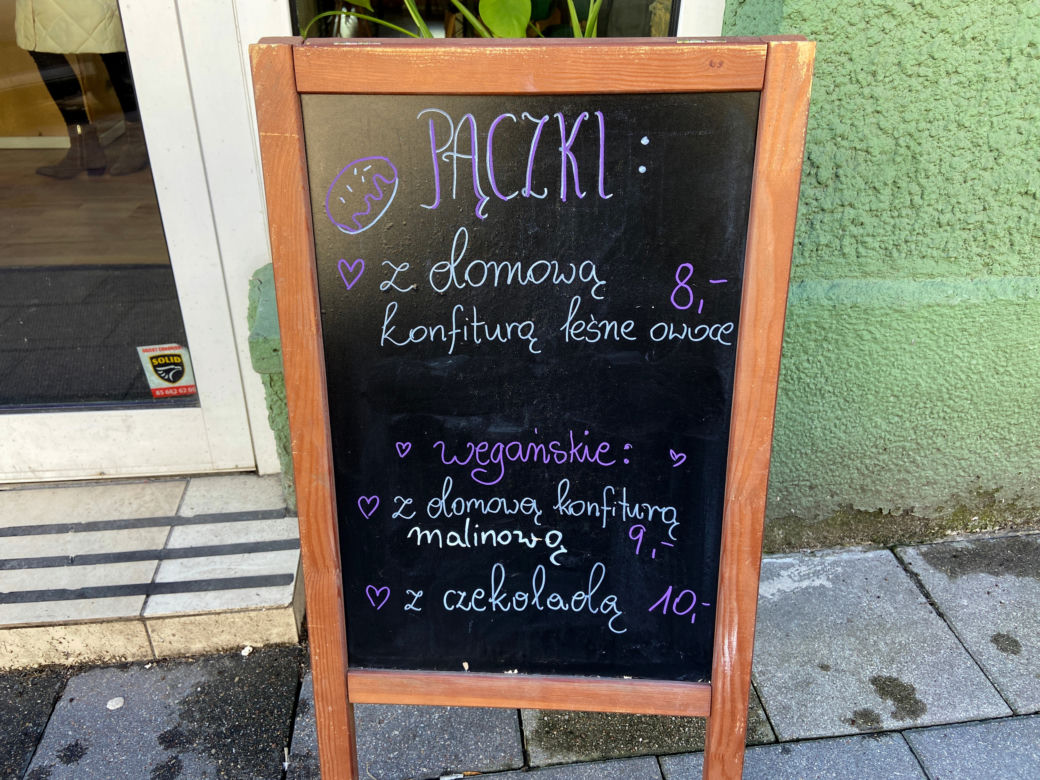 PĄCZKI :
z domową 8,-
konfiturą leśne owoce
wegańskie:
z domową konfiturą
malinową 9,-
z czekoladą 10,-
SOLID